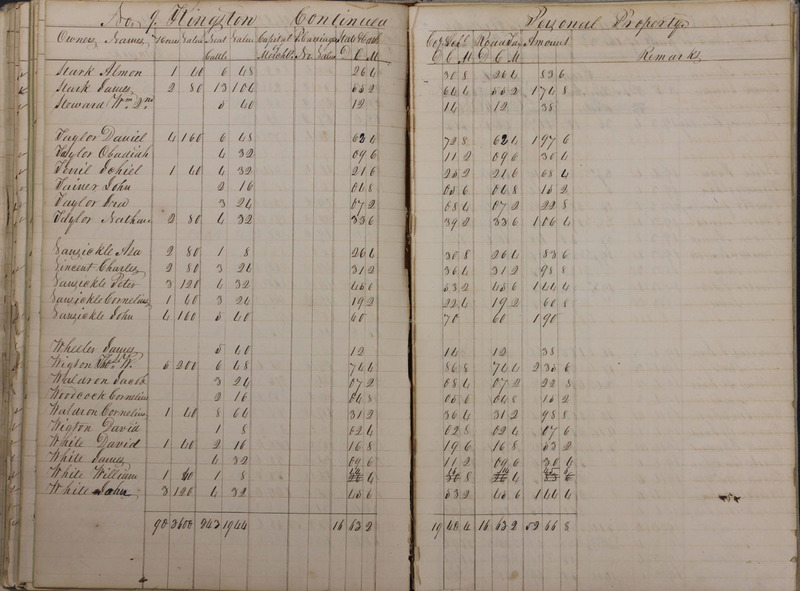 No. 9. Kingston Continued Personal Property
Owners Names Horses Value Neat Cattle Value Capital P. Carriages No. Value State & County D C M Co & Schl D C M Road Tax D C M Amount Remarks
Stark Almon 1 40 6 48 26 4 30 8 26 4 83 6
Stark James 2 80 13 104 55 2 64 4 55 2 174 8
Steward Wm 2nd 5 40 12 14 12 38
Taylor Daniel 4 160 6 48 62 4 72 8 62 4 197 6
Taylor Obadiah 4 32 09 6 11 2 09 6 30 4
1 40 4 32 21 6 25 2 21 6 68 4
John 2 16 04 8 05 6 04 8 15 2
Taylor Ira 3 24 07 2 08 4 07 2 22 8
Taylor Nathan 2 80 4 32 33 6 39 2 33 6 106 4
Vansickle Asa 2 80 1 8 26 4 30 8 26 4 83 6
Vincent Charles 2 80 3 24 31 2 36 4 31 2 98 8
Vansickle Peter 3 120 4 32 45 6 53 2 45 6 144 4
Vansickle Cornelius 1 40 3 24 19 2 22 4 19 2 60 8
Vansickle John 4 160 5 40 60 70 60 190
Wheeler James 5 40 12 14 12 38
Wigton Thos. W. 5 200 6 48 74 4 86 8 74 4 235 6
Waldron Jacob 3 24 07 2 08 4 07 2 22 8
Woodcock Cornelius 2 16 04 8 05 6 04 8 15 2
Waldron Cornelius 1 40 8 64 31 2 36 4 31 2 98 8
Wigton David 1 8 02 4 02 8 02 4 07 6
White David 1 40 2 16 16 8 19 6 16 8 53 2
White James 4 32 09 6 11 2 09 6 30 4
White William 1 40 1 8
White John 3 120 4 32 45 6 53 2 45 6 144 4
90 3600 243 1944 16 63 2 19 40 4 16 63 2 52 66 8